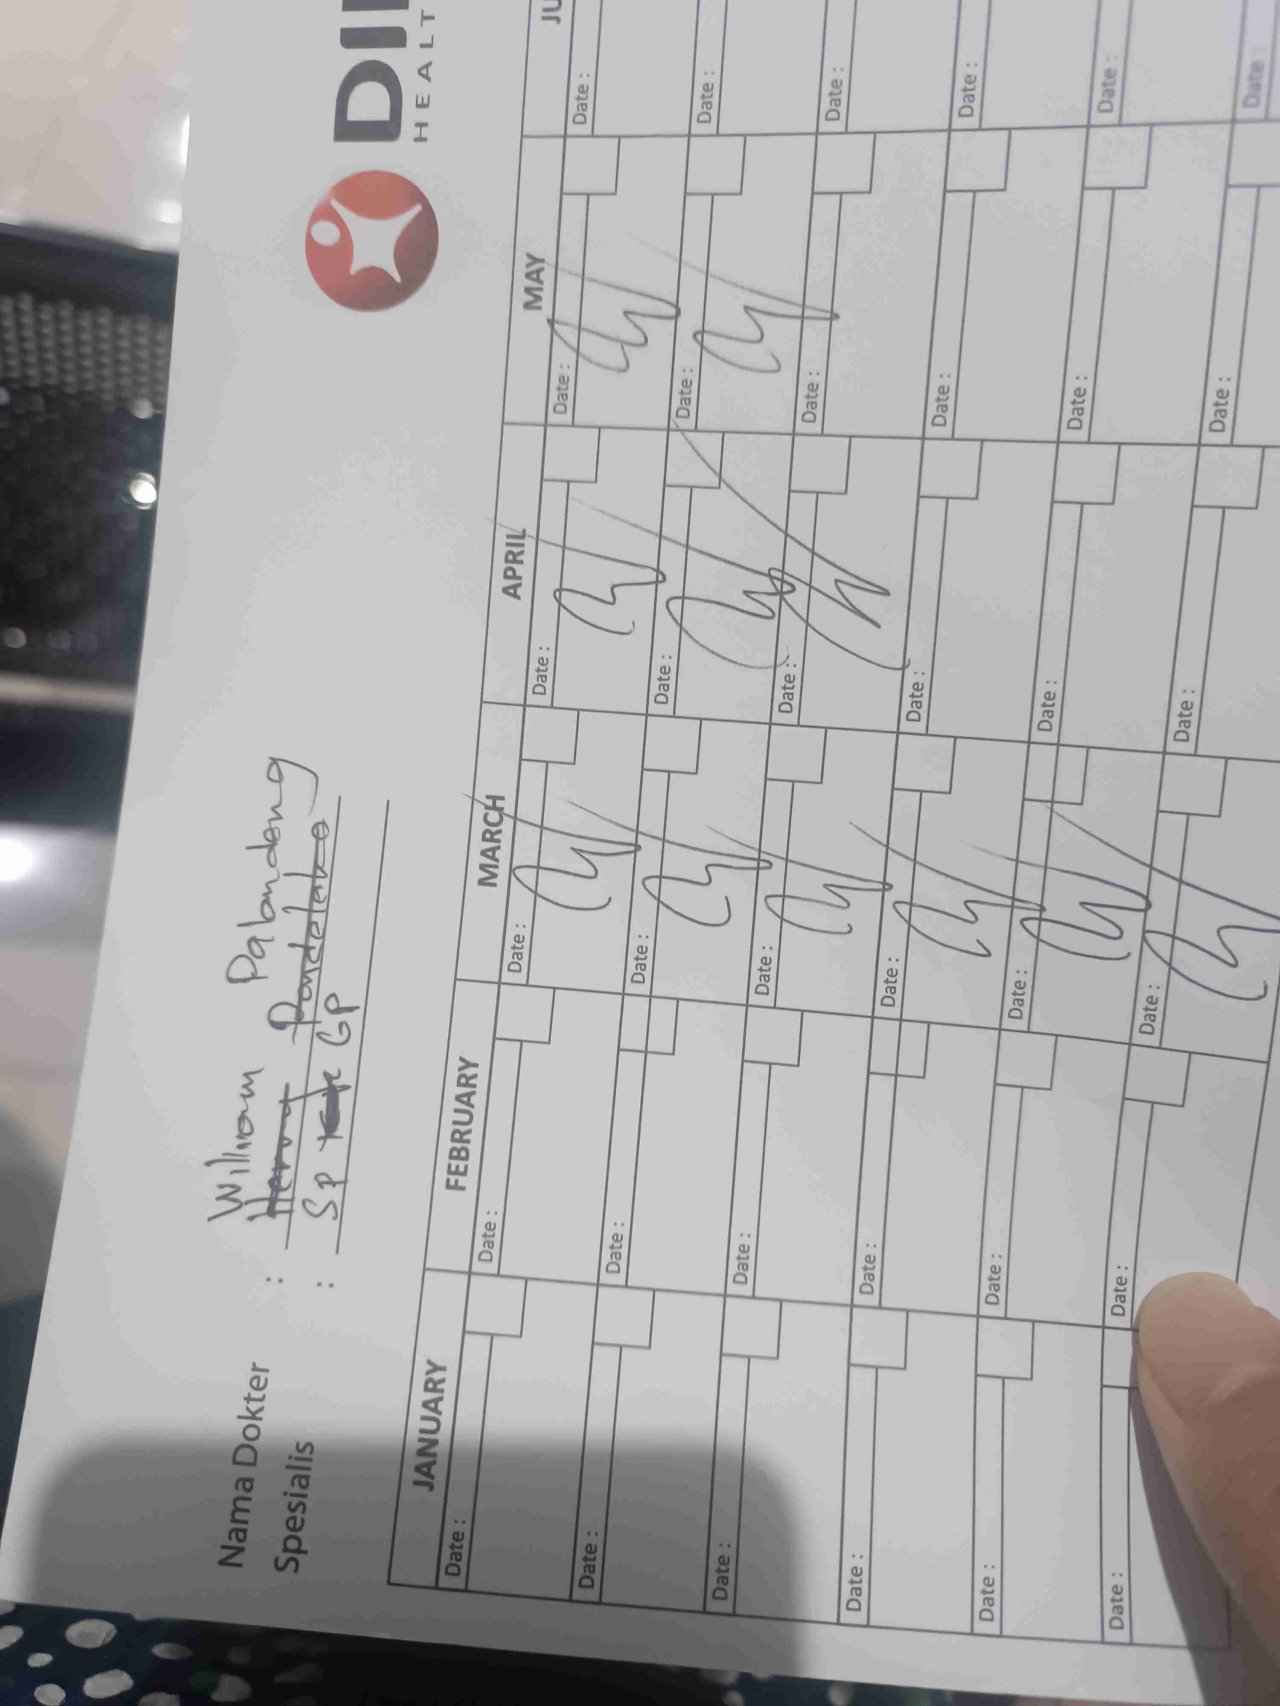 DI
HEALT
Nama Dokter : William Palamdeng
Henny Pandelake
Spesialis : SP GP
JANUARY FEBRUARY MARCH APRIL MAY JU
Date : Date : Date : Date : Date : Date :
Date : Date : Date : Date : Date : Date :
Date : Date : Date : Date : Date : Date :
Date : Date : Date : Date : Date : Date :
Date : Date : Date : Date : Date : Date :
Date : Date : Date : Date : Date : Date :